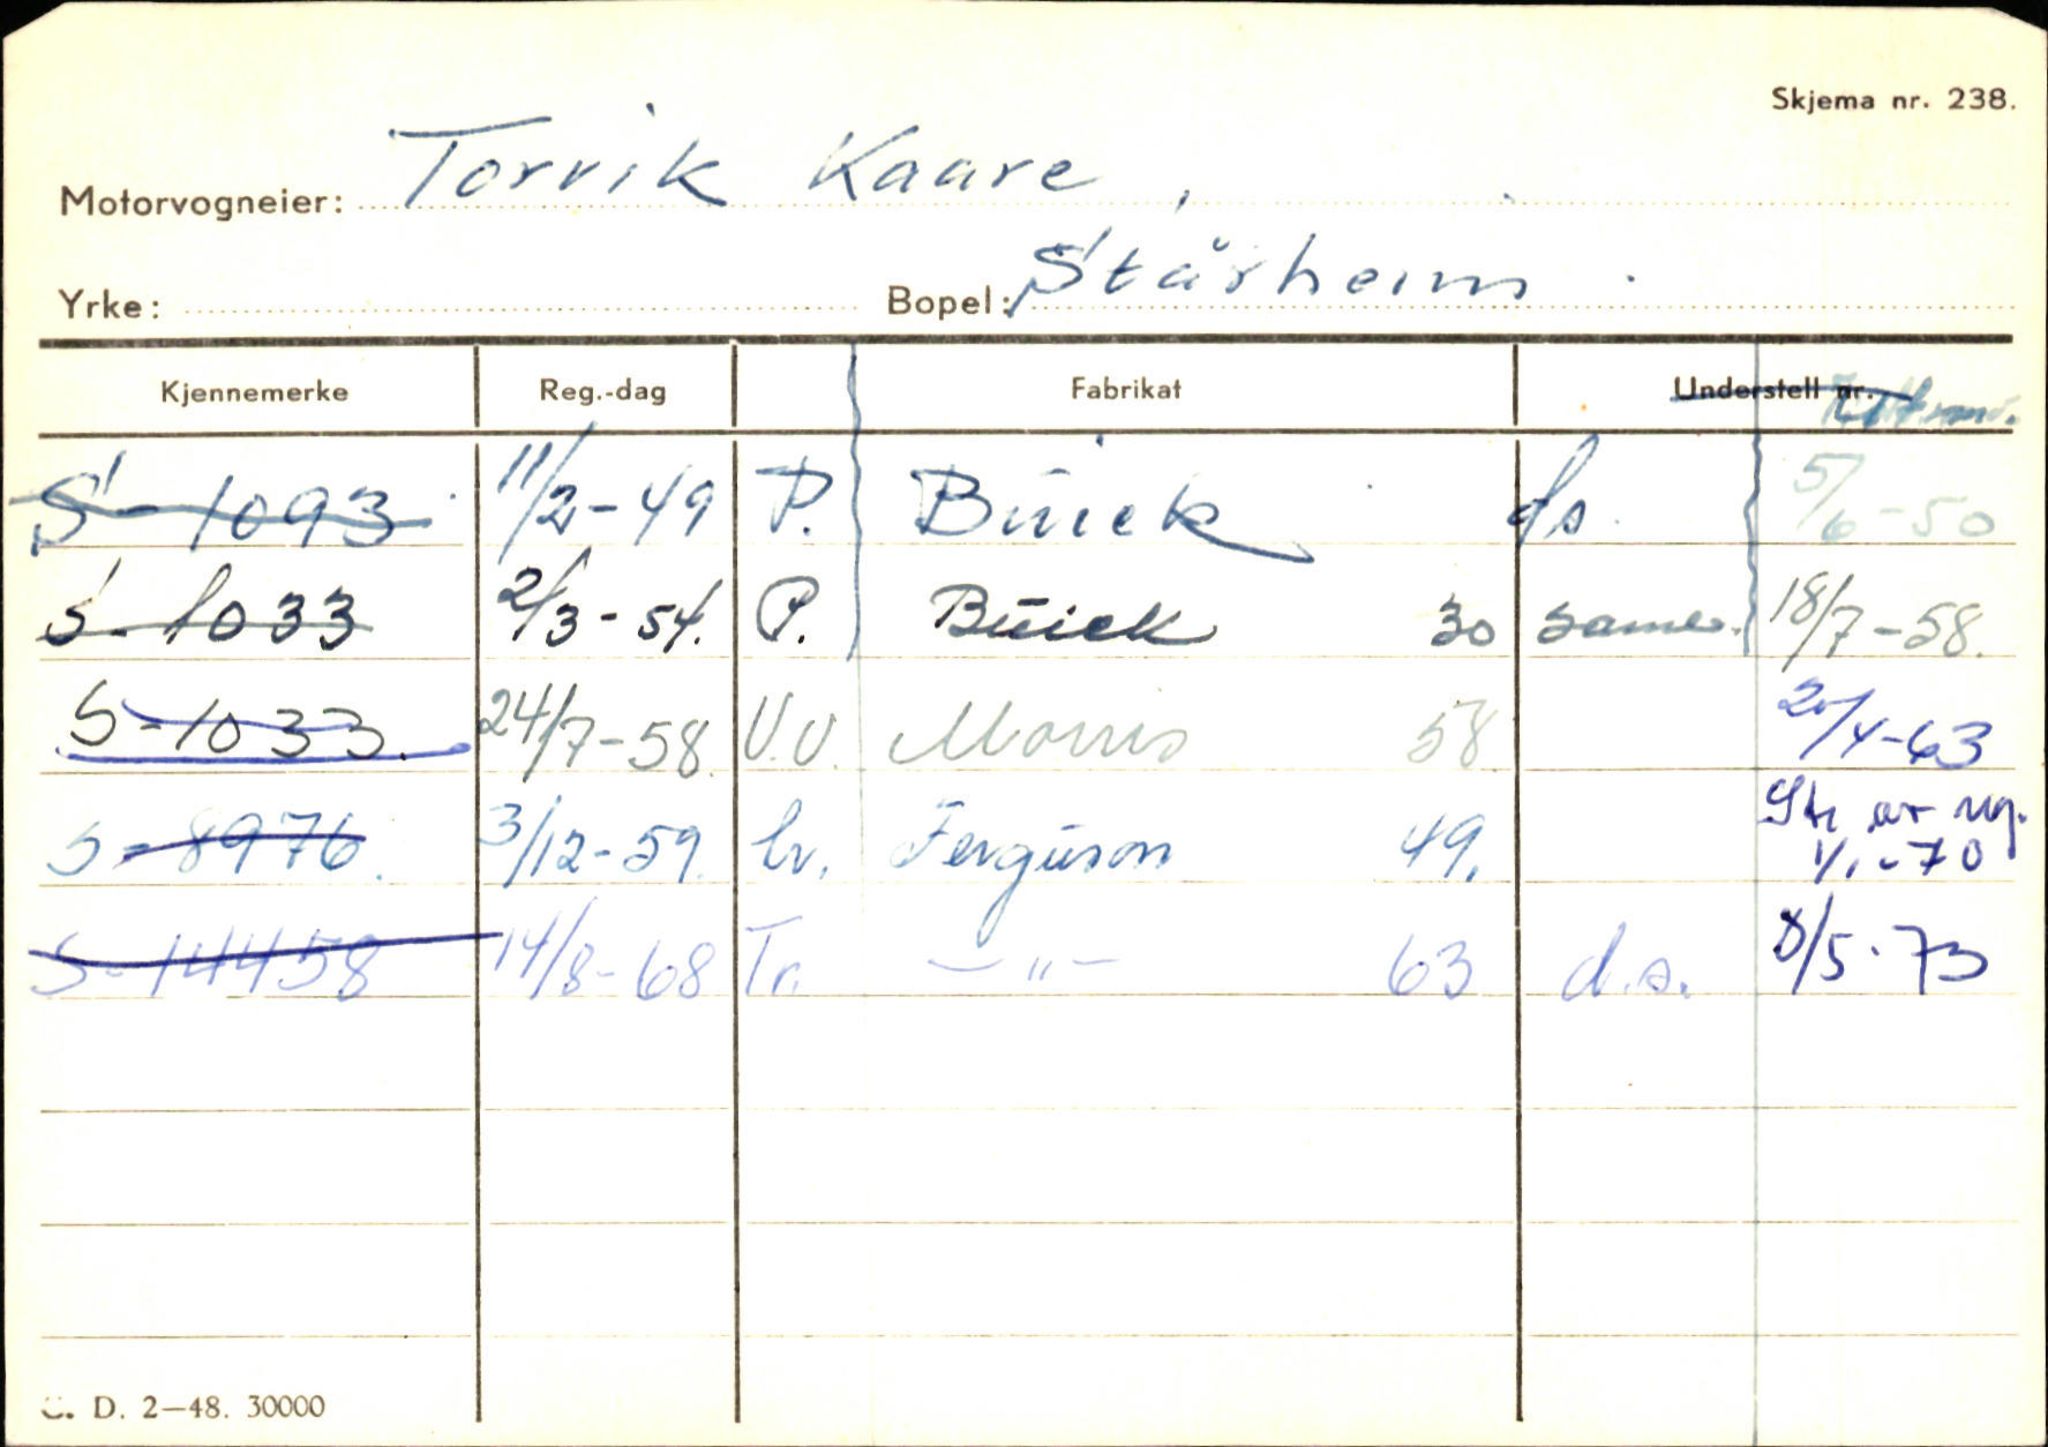 Skjema nr. 238.
Motorvogneier: Torvik Kaare,
Yrke: Bopel: Stårheim.
Kjennemerke Reg.-dag Fabrikat Understell nr.
S-1093 11/2-49 P. Buick ds. 5/6-50
S-1033 2/3-54. P. Buick 30 same. 18/7-58.
S-1033. 24/7-58. V.v. Morris 58 20/4-63
S-8976. 3/12-59. lv. Ferguson 49. Str. av reg. 1/1-70
S-14458 14/8-68 Tr. -"- 63 d.s. 8/5-73
D. 2—48. 30000